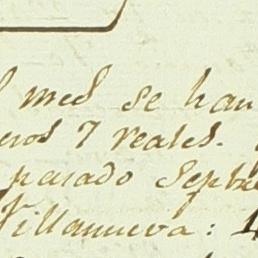 mes se han
eros 7 reales.
pasado Septie
Villanueva: